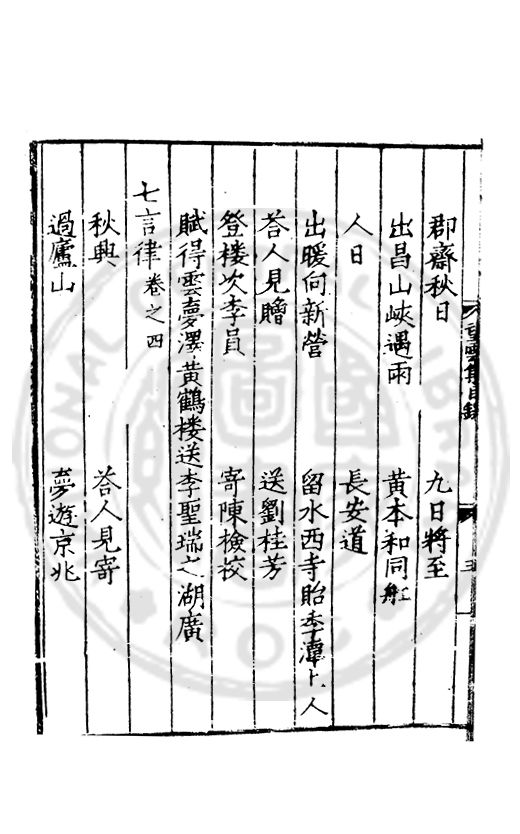 郡齋秋日　九日將至
出昌山峽遇雨　黃本和同舡
人日　長安道
出暖向新營　留水西寺貽季潭上人
荅人見贈　送劉桂芳
登楼次李員　寄陳檢校
賦得雲夢澤黃鶴楼送李聖瑞之湖廣
七言律 卷之四
秋興　荅人見寄
過廬山　夢遊京兆